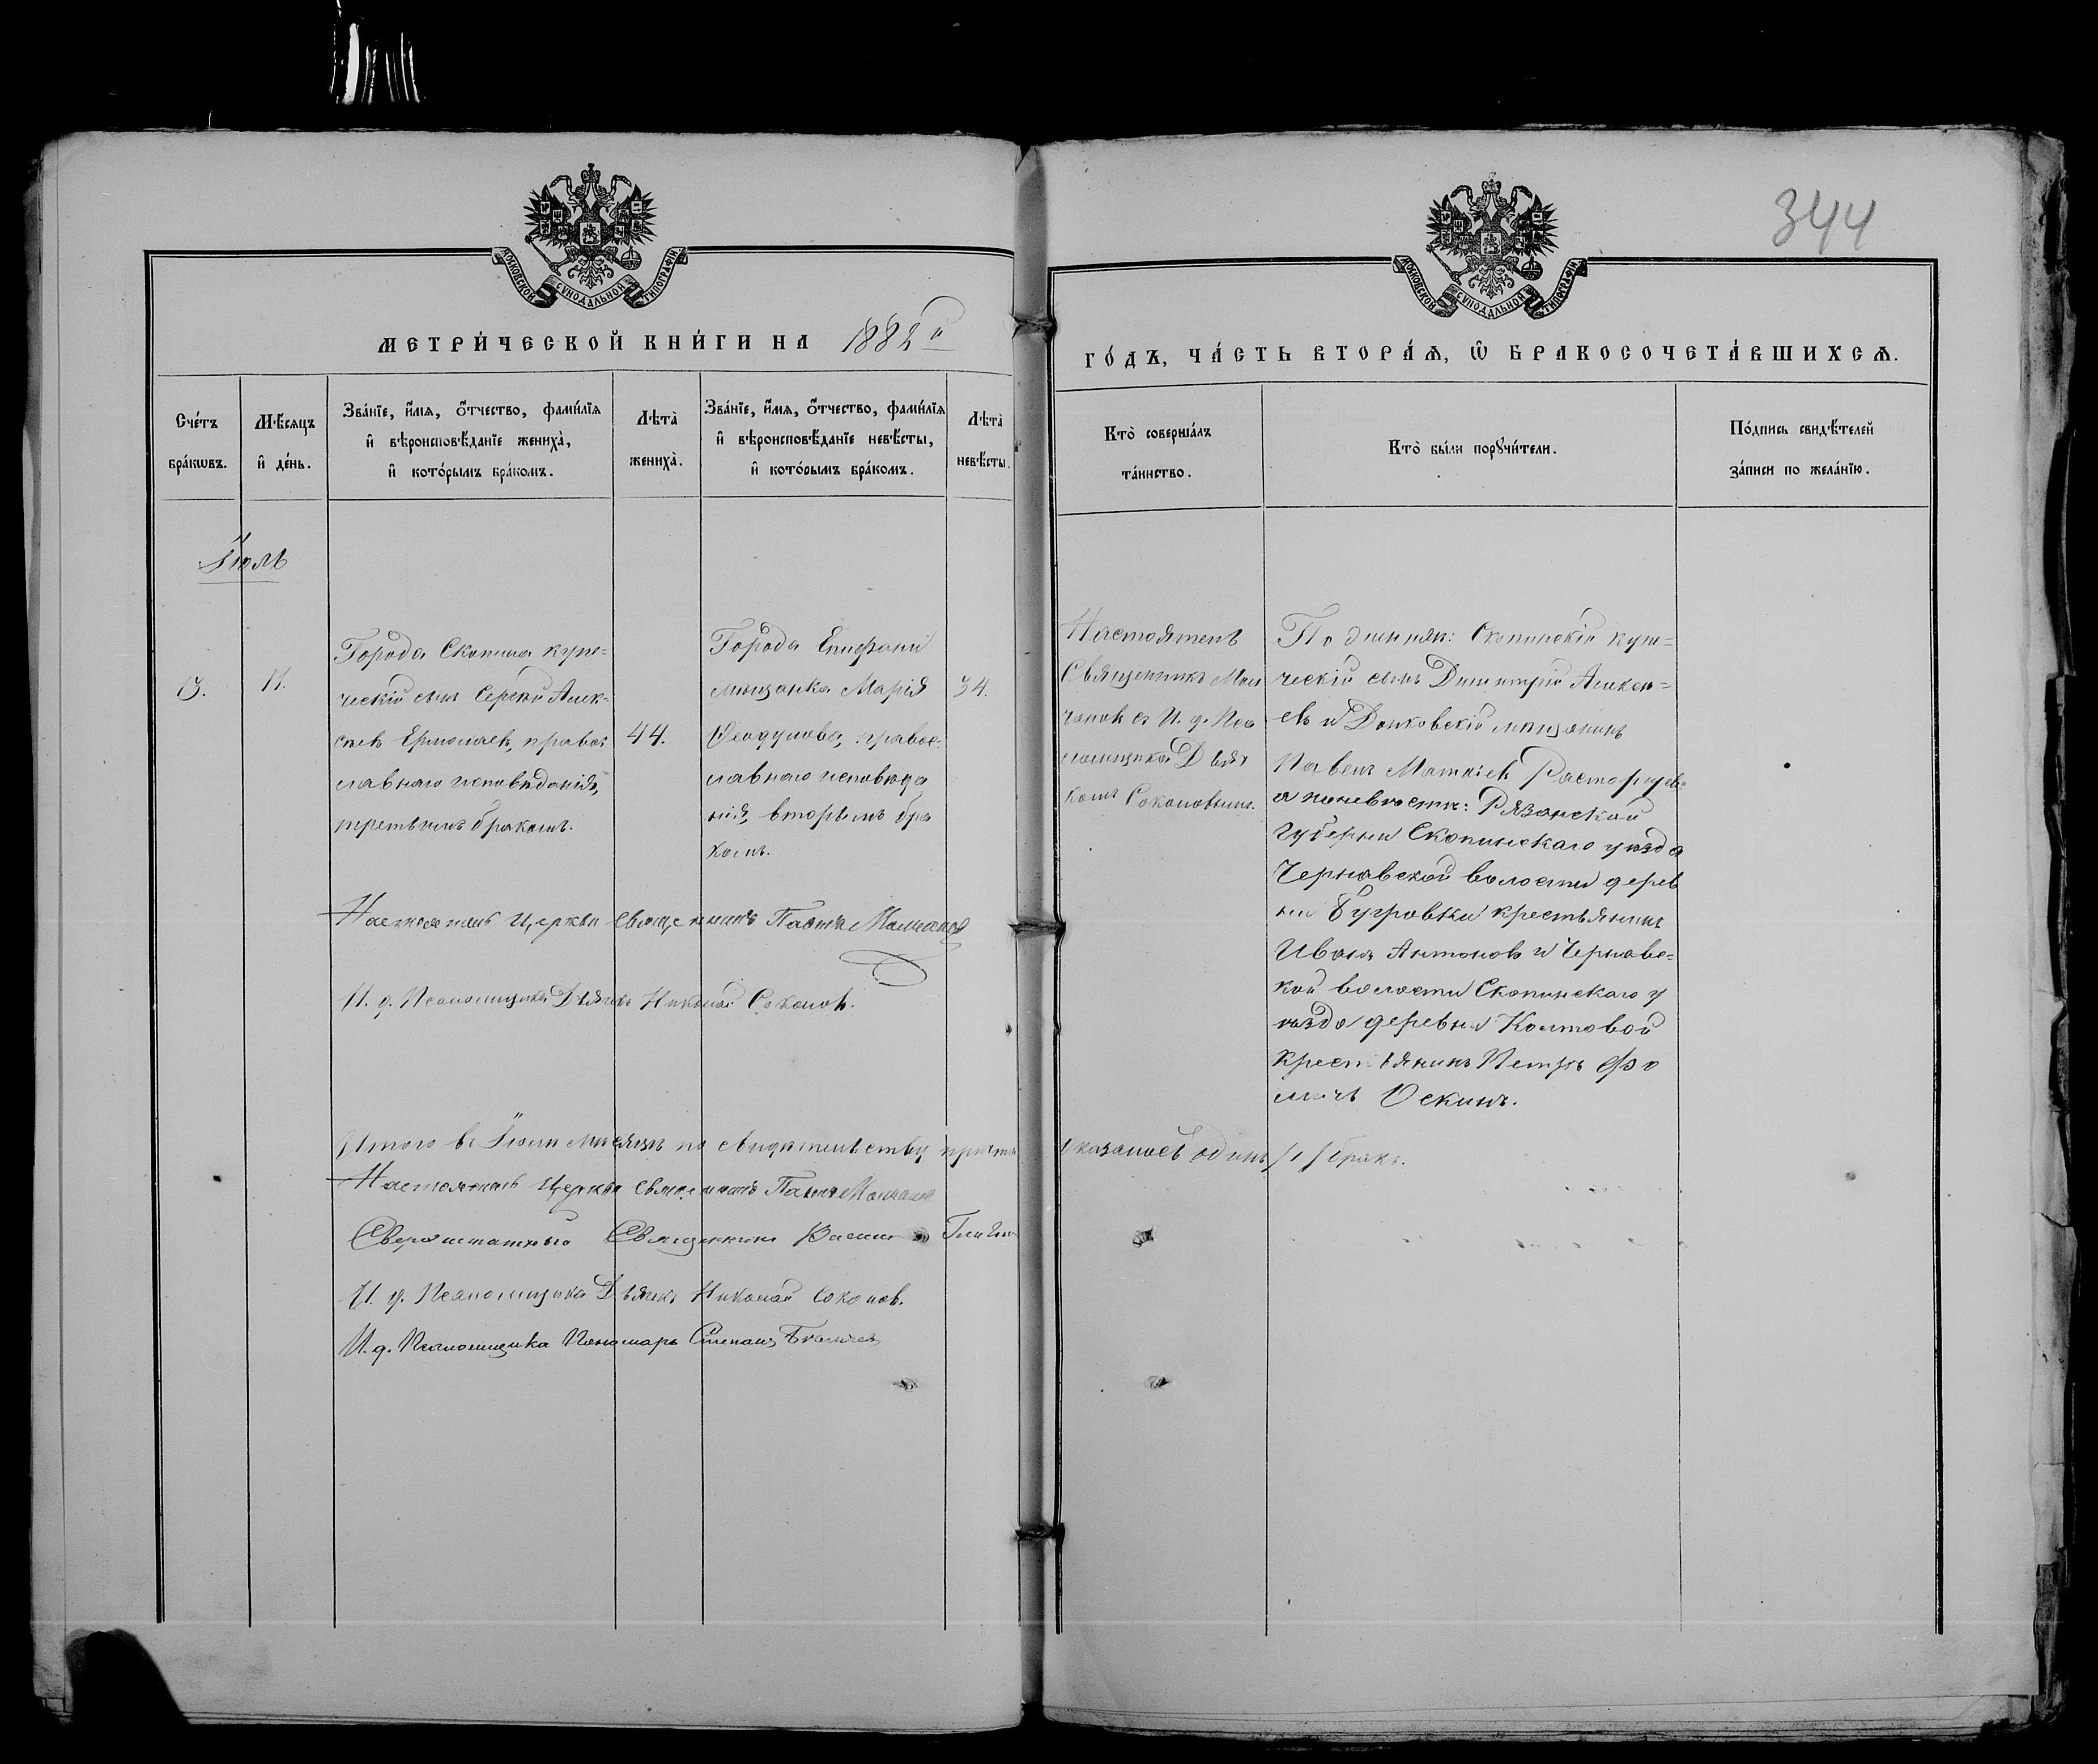 344
МОСКОВСКОЙ СѴНОДАЛЬНОЙ ТИПОГРАФІИ.
МОСКОВСКОЙ СѴНОДАЛЬНОЙ ТИПОГРАФІИ.
МЕТРИ́ЧЕСКОЙ КНИ́ГИ НА 1882й
ГО́ДЪ, ЧА́СТЬ ВТОРА́Ѧ, Ѽ БРАКОСОЧЕТА́ВШИХСѦ.
Сче́тъ
бра́кѡвъ.
Мѣ́сѧцъ
и҆ де́нь.
Зва́нїе, и҆́мѧ, ѻ҆́тчество, фами́лїѧ
и҆ вѣроисповѣ́данїе жениха̀,
и҆ кото́рымъ бра́комъ.
Лѣта̀
жениха̀.
Зва́нїе, и҆́мѧ, ѻ҆́тчество, фами́лїѧ
и҆ вѣроисповѣ́данїе невѣ́сты,
и҆ кото́рымъ бра́комъ.
Лѣта̀
невѣ́сты.
Кто̀ соверша́лъ
та́инство.
Кто̀ бы́ли порꙋчи́тели.
По́дпись свидѣ́телей
за́писи по жела́нїю.
Іюль
13.
11.
Города Скопина купе-
ческій сынъ Сергѣй Алек-
сѣевъ Ермолаевъ, правос
лавнаго исповѣданія,
третьимъ бракомъ.
44.
Города Епифани
мѣщанка Марія
Ѳеодулова, правос-
лавнаго исповѣда
нія, вторымъ бра
комъ.
34.
Настоятель
Священникъ Мол
чановъ съ И. д. Пса
ломщика Дьяч
комъ Соколовымъ.
По женихѣ: Скопинскій купе-
ческій сынъ Димитрій Алексѣ-
евъ и Донковскій мѣщанинъ
Павелъ Матвѣевъ Расторгуевъ
а по невѣстѣ: Рязанской
губерніи Скопинскаго уѣзда
Чернавской волости дерев
ни Бугровки крестьянинъ
Иванъ Антоновъ и Чернавс-
кой волости Скопинскаго у
ѣзда деревни Колтовой
крестьянинъ Петръ Фо
мичъ Оскинъ.
Настоятель Церкви Священникъ Павелъ Молчановъ
И. д. Псаломщика Дьячекъ Николай Соколовъ.
Итого въ Іюлѣ мѣсяцѣ по свидѣтельству причта оказалось одинъ /1/ бракъ.
Настоятель Церкви Священникъ Павелъ Молчановъ
Сверхштатный Священникъ
И. д. Псаломщика Дьячекъ Николай Соколовъ.
И. д. Псаломщика Пономарь Степанъ